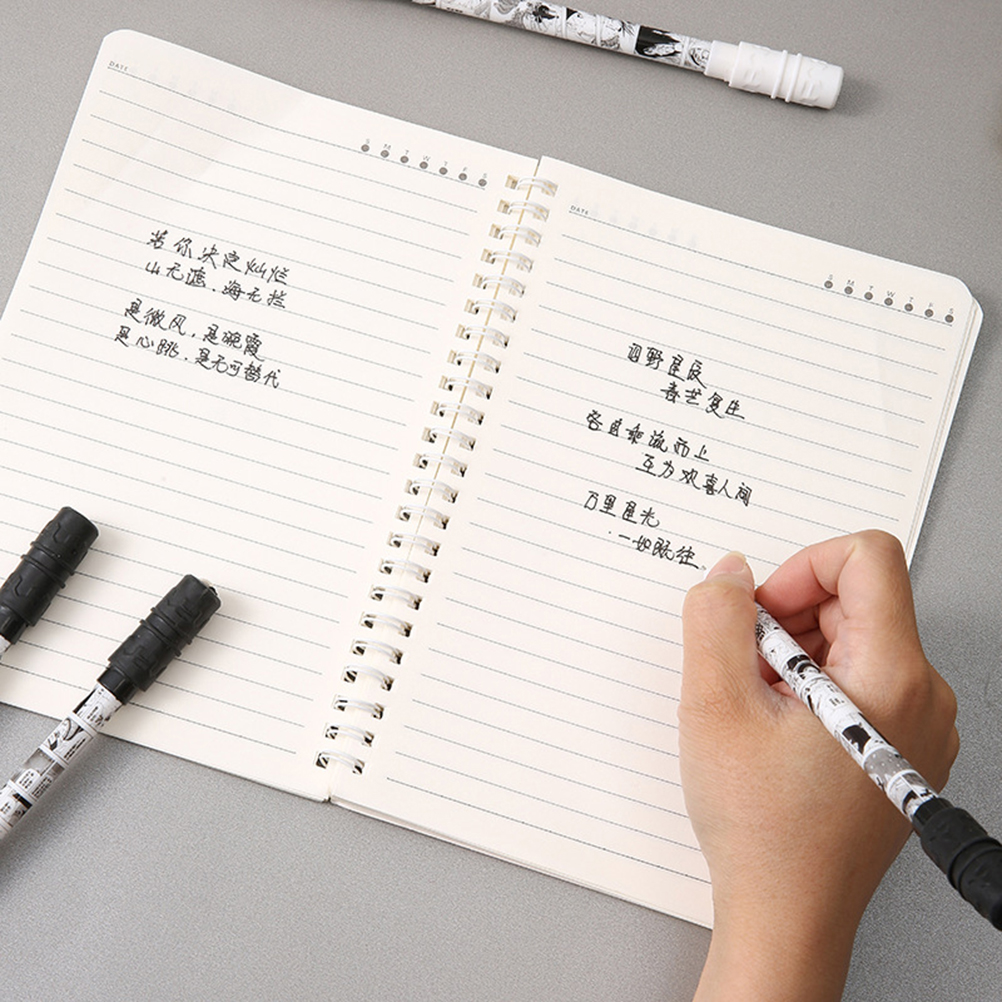 DATE
S M T W T F S
若你决定灿烂
山无遮，海无拦
是微风，是晚霞
是心跳，是无可替代
DATE
S M T W T F S
旧野星辰
春芒复生
各自乘流而上
互为欢喜人间
万里星光
一如既往。